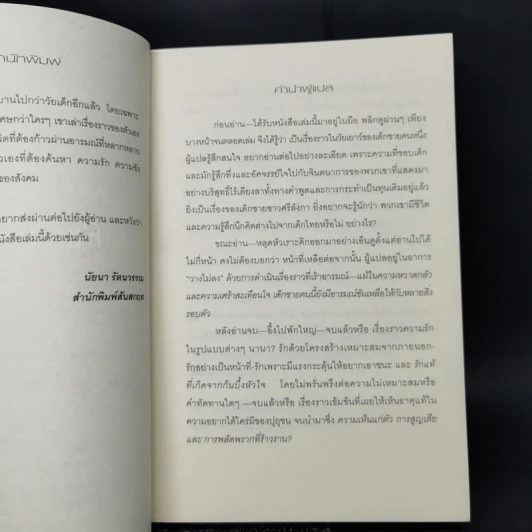 นักพิมพ์
บานไปกว่าวัยเด็กอีกแล้ว โดยเฉพาะ
เศษกว่าใครๆ เขาเล่าเรื่องราวของตัวเอง
วิตที่ต้องก้าวผ่านอารมณ์ที่หลากหลาย
ัวเองที่ต้องค้นหา ความรัก ความชัง
ของสังคม
อยากส่งผ่านต่อไปยังผู้อ่าน และหวังว่า
นังสือเล่มนี้ด้วยเช่นกัน
นัยนา รัตนวรรณ
สำนักพิมพ์สันสกฤต
คำนำผู้แปล
ก่อนอ่าน—ได้รับหนังสือเล่มนี้มาอยู่ในมือ พลิกดูผ่านๆ เพียง
บางหน้าจนตลอดเล่ม จึงได้รู้ว่า เป็นเรื่องราวในวัยเยาว์ของเด็กชายคนหนึ่ง
ผู้แปลรู้สึกสนใจ อยากอ่านต่อไปอย่างละเอียด เพราะความที่ชอบเด็ก
และมักรู้สึกทึ่งและอัศจรรย์ใจไปกับจินตนาการของพวกเขาที่แสดงมา
อย่างบริสุทธิ์ไร้เดียงสาทั้งทางคำพูดและการกระทำเป็นทุนเดิมอยู่แล้ว
ยิ่งเป็นเรื่องของเด็กชายชาวศรีลังกา ยิ่งอยากจะรู้นักว่า พวกเขามีชีวิต
และความรู้สึกนึกคิดต่างไปจากเด็กไทยหรือไม่ อย่างไร?
ขณะอ่าน—หลุดหัวเราะคิกออกมาอย่างเอ็นดูตั้งแต่อ่านไปได้
ไม่กี่หน้า คงไม่ต้องบอกว่า หน้าที่เหลือต่อจากนั้น ผู้แปลอยู่ในอาการ
“วางไม่ลง” ด้วยการดำเนินเรื่องราวที่เร้าอารมณ์—แม้ในความหวาดกลัว
และความเศร้าสะเทือนใจ เด็กชายคนนี้ยังมีอารมณ์ขันเหลือให้กับหลายสิ่ง
รอบตัว
หลังอ่านจบ—อึ้งไปพักใหญ่—จบแล้วหรือ เรื่องราวความรัก
ในรูปแบบต่างๆ นานา? รักด้วยโครงสร้างเหมาะสมจากภายนอก-
รักอย่างเป็นหน้าที่-รักเพราะมีแรงกระตุ้นให้อยากเอาชนะ และ รักแท้
ที่เกิดจากก้นบึ้งหัวใจ โดยไม่พรั่นพรึงต่อความไม่เหมาะสมหรือ
คำทัดทานใดๆ —จบแล้วหรือ เรื่องราวเข้มข้นที่เผยให้เห็นธาตุแท้ใน
ความอยากได้ใคร่มีของปุถุชน จนนำมาซึ่ง ความเห็นแก่ตัว การสูญเสีย
และ การพลัดพรากที่ร้าวราน?